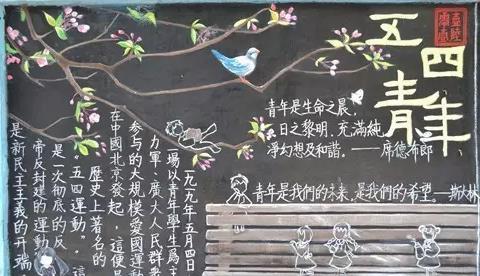 五四青年
青年是生命之晨，
日之黎明，充滿純
淨幻想及和諧。——席德布郎
青年是我們的未來，是我們的希望。—斯大林
一九一九年五月四
場以青年學生爲主
力軍、廣大人民群
參与的大規模愛國運動
在中國北京發起，這便是
歷史上著名的
“五四運動”，這
是一次徹底的反
帝反封建的運動
是新民主主義的开端